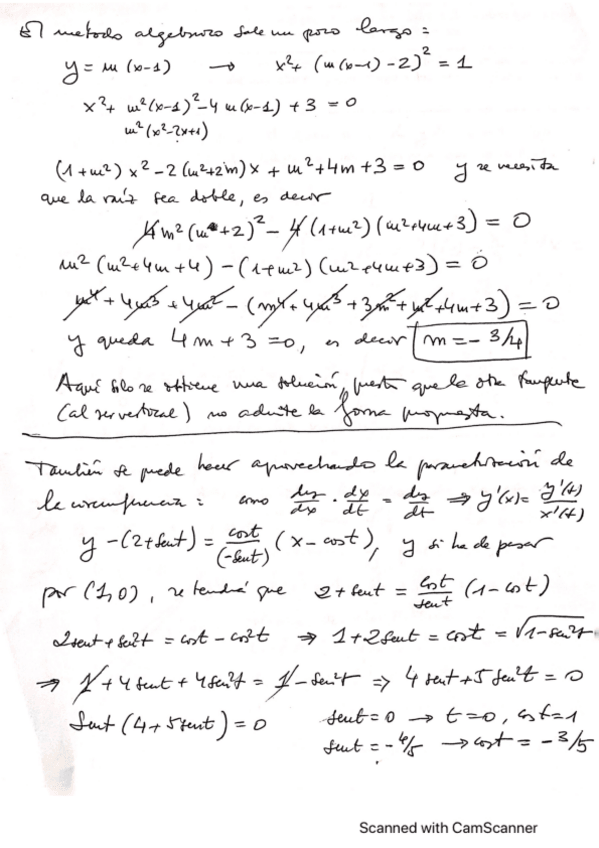 El metodo algebraico sale un poco largo:
y = m(x-1) → x² + (m(x-1) - 2)² = 1
x² + m²(x-1)² - 4m(x-1) + 3 = 0
m²(x²-2x+1)
(1+m²)x² - 2(m²+2m)x + m²+4m+3 = 0 y se necesita
que la raíz sea doble, es decir
4m²(m+2)² - 4(1+m²)(m²+4m+3) = 0
m²(m²+4m+4) - (1+m²)(m²+4m+3) = 0
m⁴ + 4m³ + 4m² - (m⁴ + 4m³ + 3m² + m² + 4m + 3) = 0
y queda 4m+3 = 0, es decir m = -3/4
Aquí solo se obtiene una solución, puesto que la otra tangente
(al ser vertical) no admite la forma propuesta.
También se puede hacer aprovechando la parametrización de
la circunferencia: como dy/dx · dx/dt = dy/dt ⇒ y'(x) = y'(t)/x'(t)
y - (2+sent) = cost/(-sent) (x - cost), y si ha de pasar
por (1,0), se tendrá que 2+sent = cost/sent (1-cost)
2sent + sen²t = cost - cos²t ⇒ 1+2sent = cost = √1-sen²t
⇒ 1 + 4sent + 4sen²t = 1 - sen²t ⇒ 4sent + 5sen²t = 0
sent(4+5sent) = 0 sent = 0 → t=0, cost=1
sent = -4/5 → cost = -3/5
Scanned with CamScanner